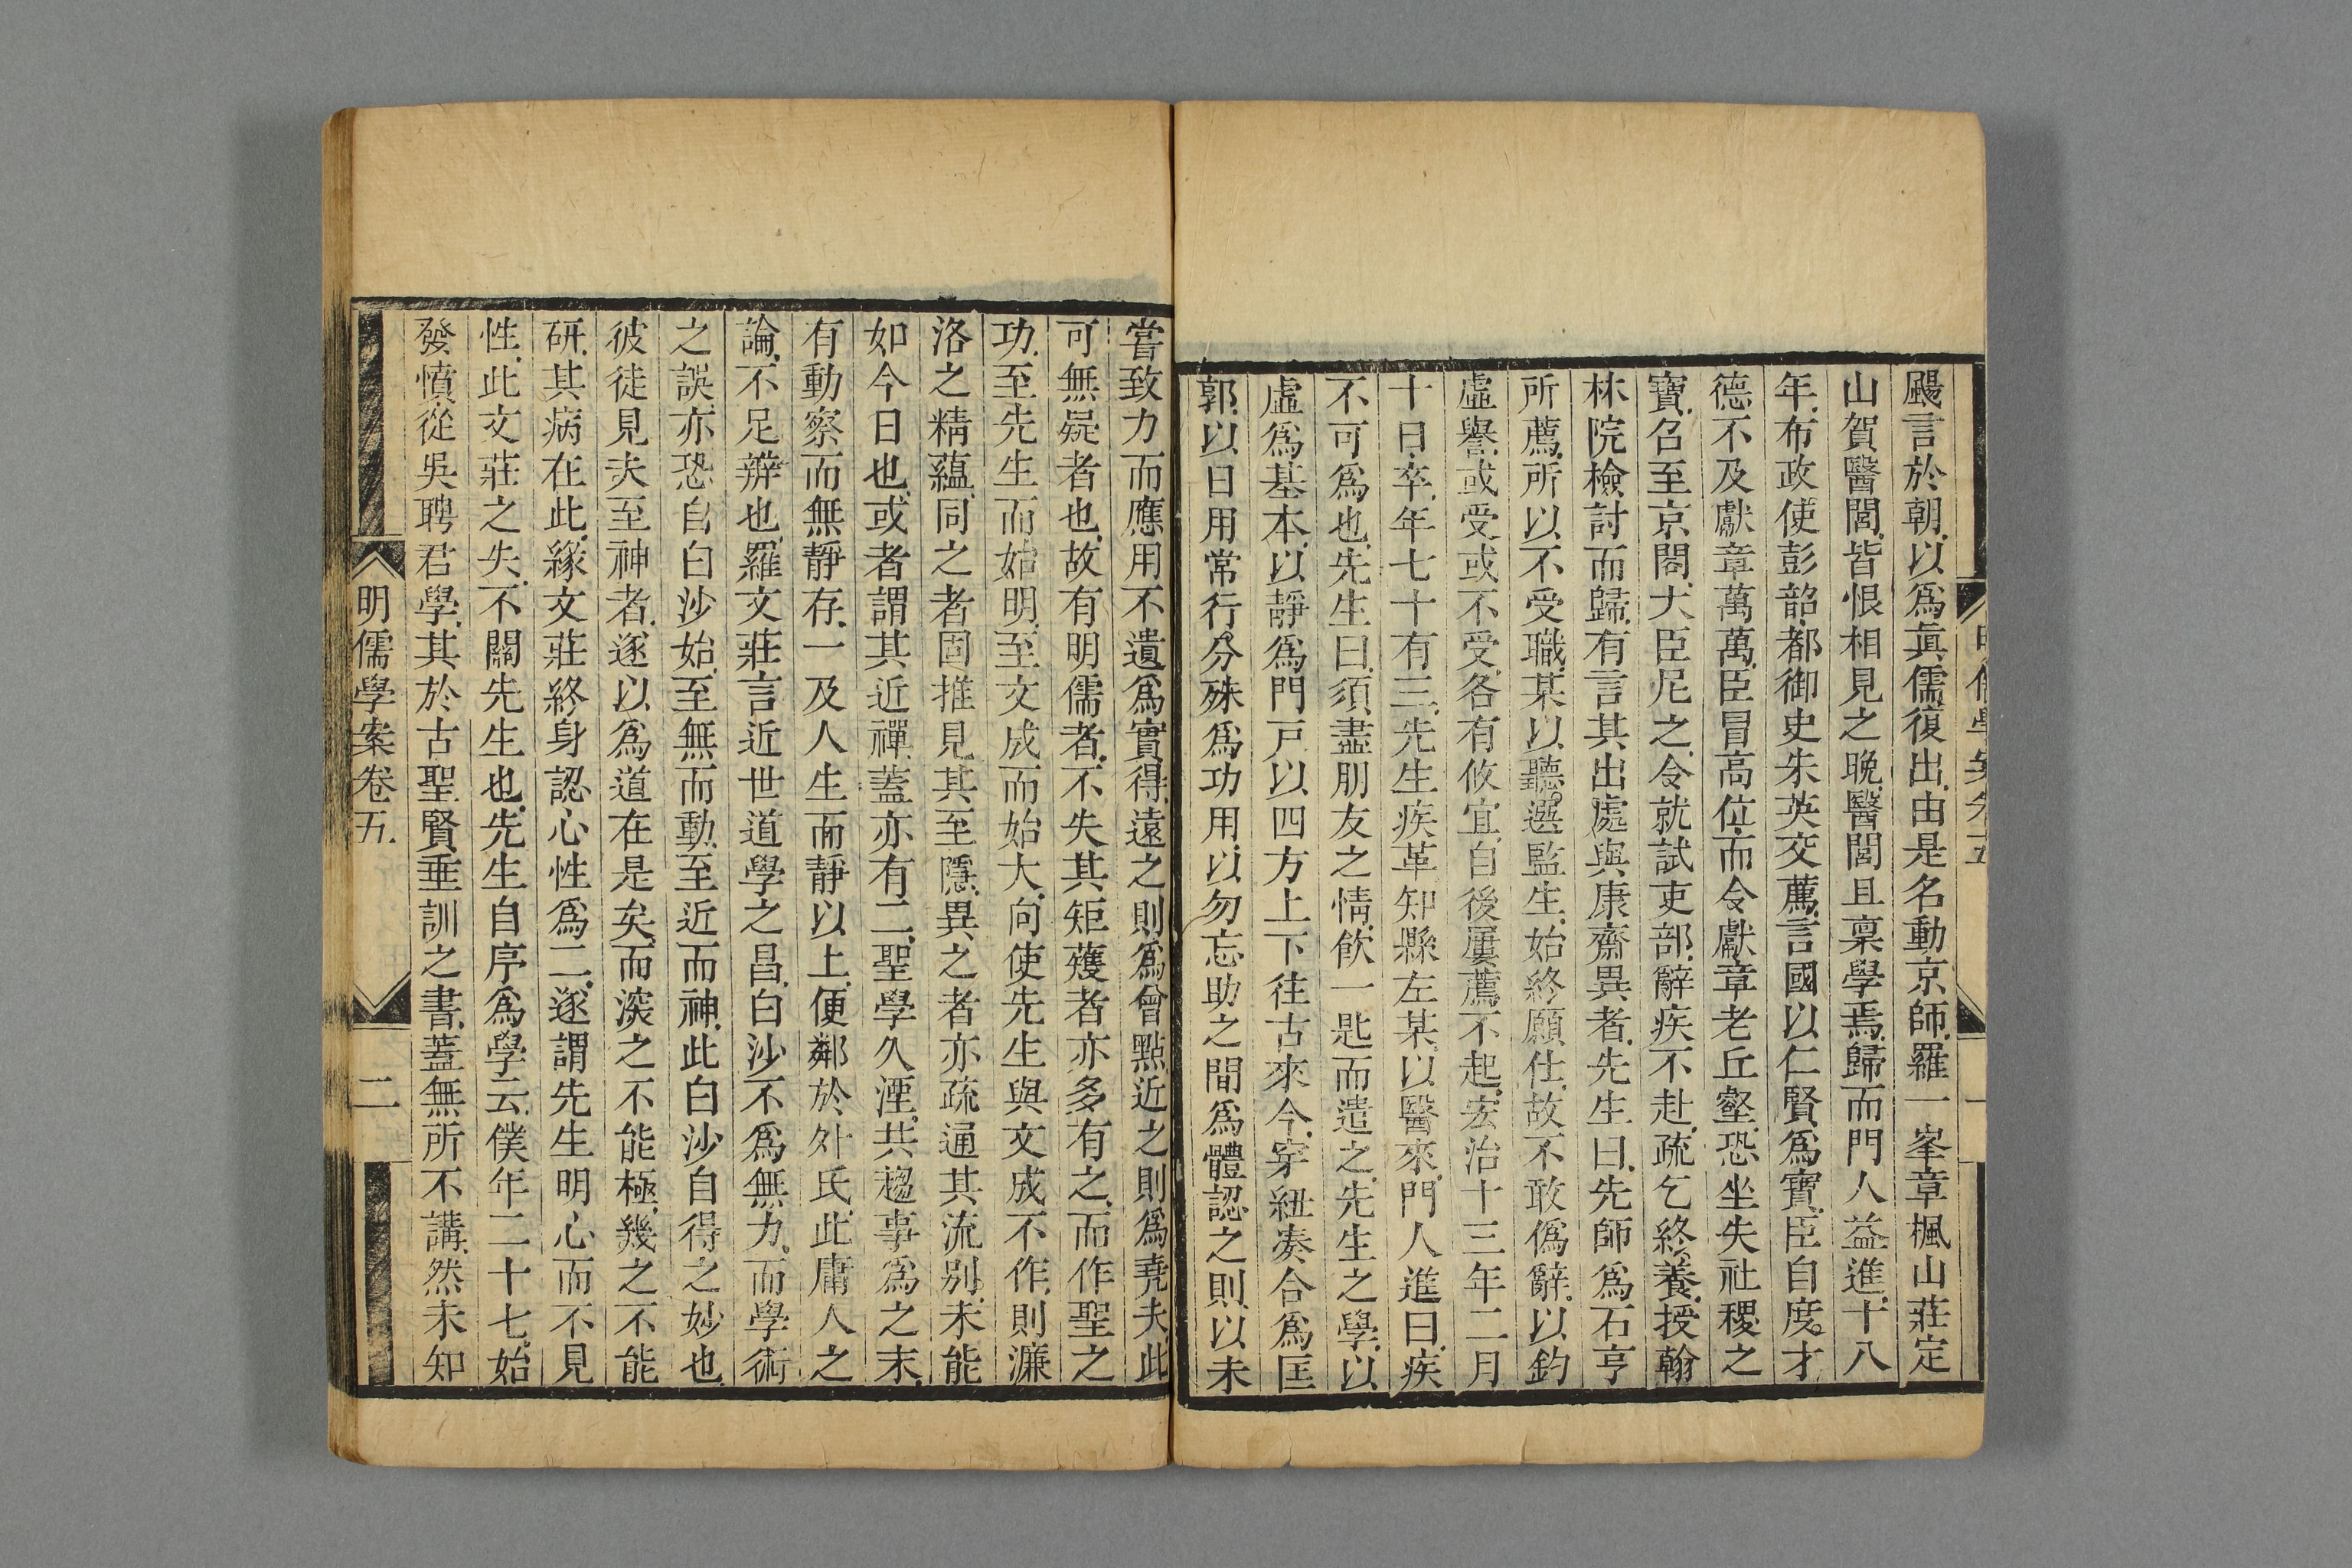 颺言於朝以爲眞儒復出由是名動京師羅一峯章楓山莊定
山賀醫閭皆恨相見之晚醫閭且稟學焉歸而門人益進十八
年布政使彭韶都御史朱英交薦言國以仁賢爲寶臣自度才
德不及獻章萬萬臣冒高位而令獻章老丘壑恐坐失社稷之
寶召至京閣大臣尼之令就試吏部辭疾不赴疏乞終養授翰
林院檢討而歸有言其出處與康齋異者先生曰先師爲石亨
所薦所以不受職某以聽選監生始終願仕故不敢僞辭以釣
虛譽或受或不受各有攸宜自後屢薦不起宏治十三年二月
十日卒年七十有三先生疾革知縣左某以醫來門人進曰疾
不可爲也先生曰須盡朋友之情飮一匙而遣之先生之學以
虛爲基本以靜爲門戸以四方上下往古來今穿紐凑合爲匡
郭以日用常行分殊爲功用以勿忘助之間爲體認之則以未
嘗致力而應用不遺爲實得遠之則爲曾點近之則爲堯夫此
可無疑者也故有明儒者不失其矩矱者亦多有之而作聖之
功至先生而始明至文成而始大向使先生與文成不作則濂
洛之精蘊同之者固推見其至隱異之者亦疏通其流别未能
如今日也或者謂其近禪蓋亦有二聖學久湮共趨事爲之末
有動察而無靜存一及人生而靜以上便鄰於外氏此庸人之
論不足辨也羅文莊言近世道學之昌白沙不爲無力而學術
之誤亦恐自白沙始至無而動至近而神此白沙自得之妙也
彼徒見夫至神者遂以爲道在是矣而深之不能極幾之不能
研其病在此緣文莊終身認心性爲二遂謂先生明心而不見
性此文莊之失不關先生也先生自序爲學云僕年二十七始
發憤從吳聘君學其於古聖賢垂訓之書蓋無所不講然未知
明儒學案卷五
二